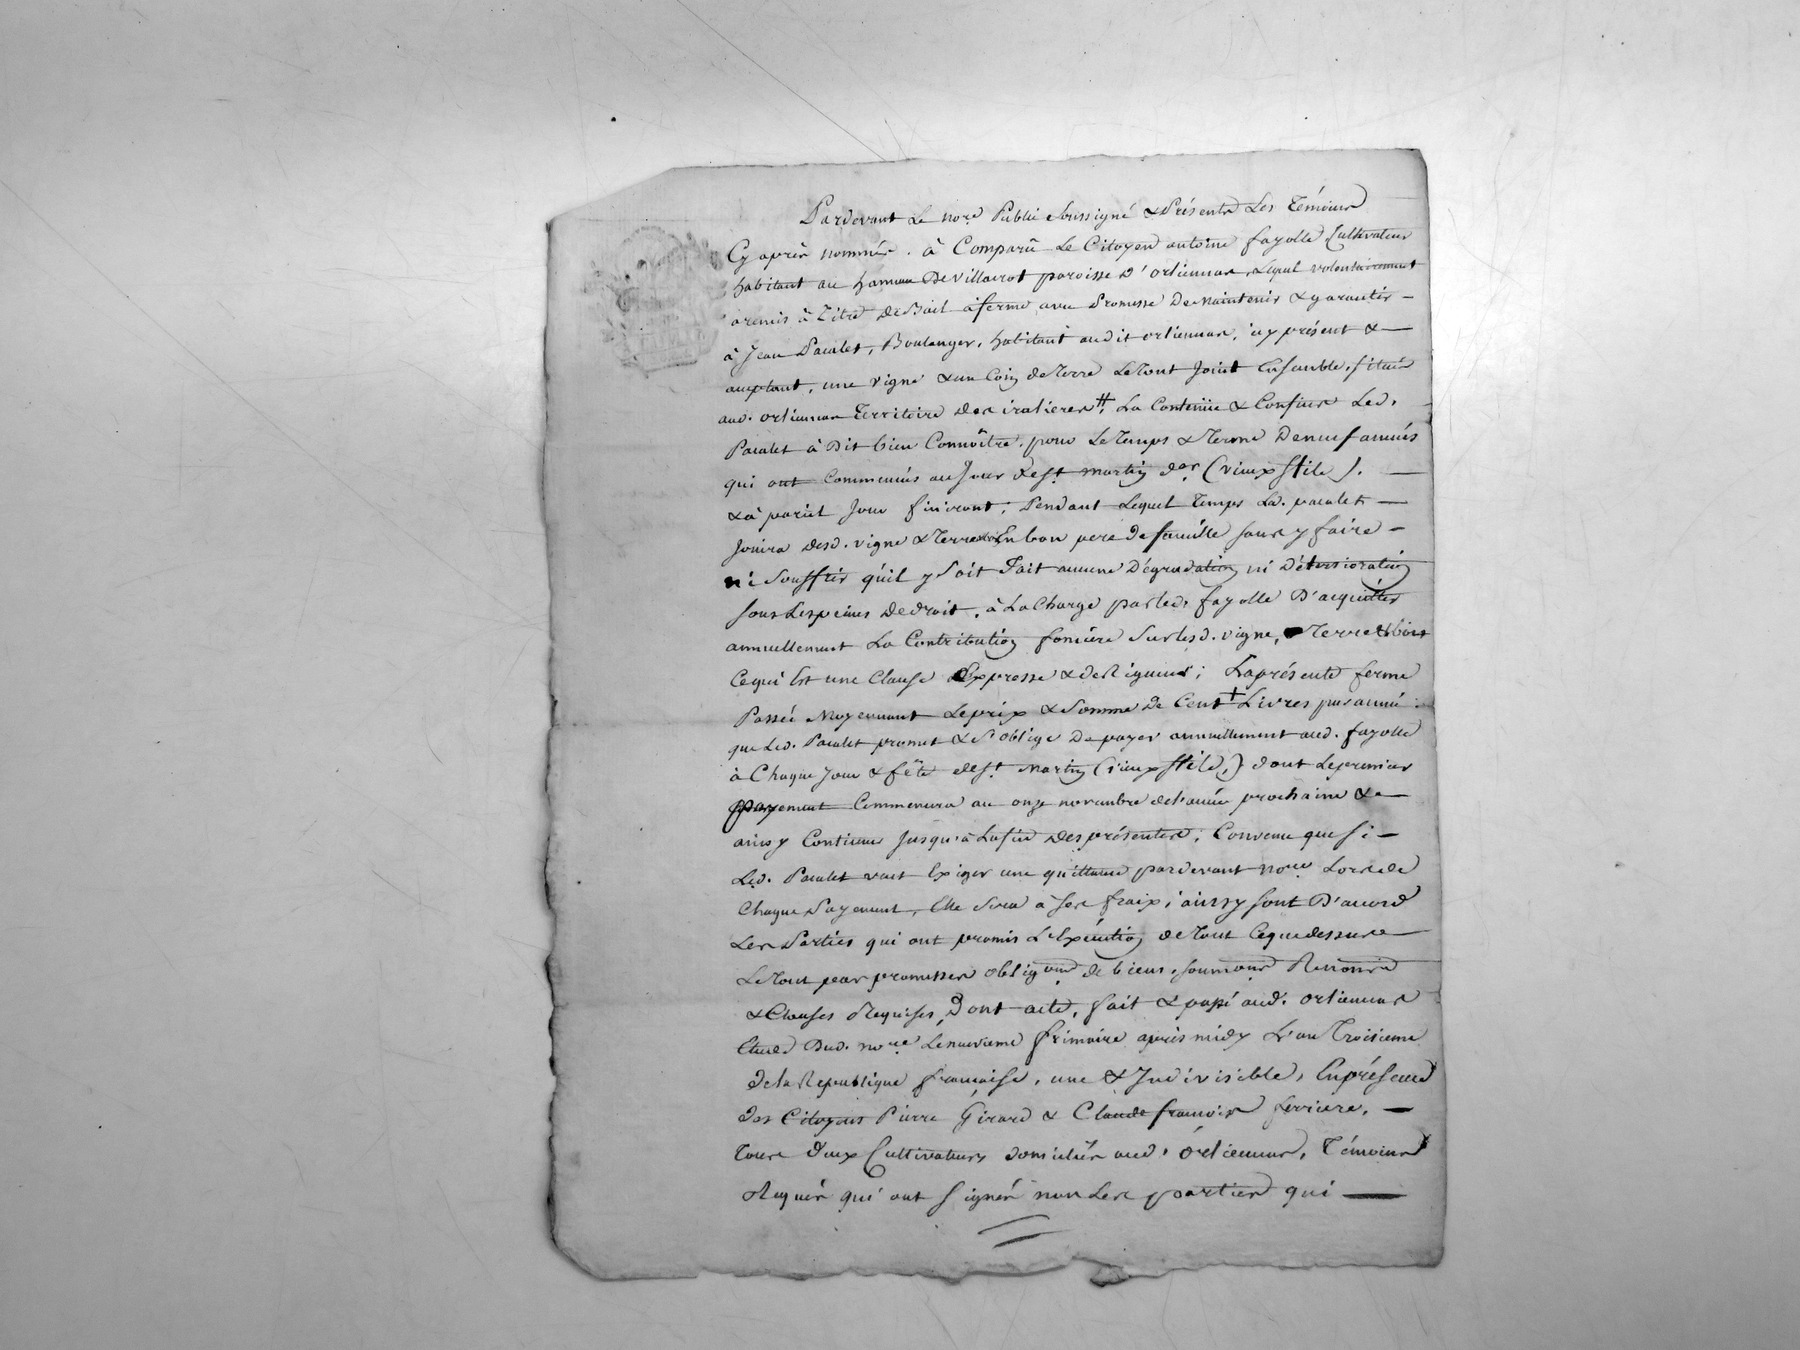 Pardevant Le no.re Public soussigné & Présents Les Témoins
Cy après nommés. à Comparû Le Citoyen antoine fayolle Cultivateur
habitant au hameau De villaurot paroisse D'orliennas, Lequel volontairement
aremis à Titre De Bail àferme avec Promesse De maintenir & garantir —
à Jean Paculet, Boulanger, habitant audit orliennas, icy présent & —
acceptant, une vigne & un Coin de Terre Le Tout Joint Ensemble, situés
aud. orliennas Territoire Des #. La Contenüe & Confins Led.
Paculet à Dit bien Connoître, pour Le Temps & Terme De neuf années
qui ont Commencés au Jour de st. martin der. (vieux stile). —
& à pareil Jour finiront; Pendant Lequel Temps Led. paculet —
Jouira desd. vigne & Terre En bon pere de famille sans y faire —
ni Souffrir qu'il y Soit Fait aucune Dégradation ni Détérioration
sous Les peines De droit, à La Charge par led. fayolle D'acquitter
annuellement La Contribution fonciere Sur lesd. vigne, Terre & bois
Ce qui Est une Clause Expresse & de Rigueur; La présente ferme
Passée Moyennant Le prix & Somme De Cent + Livres par année
que Led. Paculet promet & S'oblige De payer annuellement aud. fayolle
à Chaque Jour & fête de st. Martin (vieux stile,) dont Le premier
payement Commencera au onze novembre de l'année prochaine & —
ainsy Continuer Jusqu'à La fin Des présentes; Convenu que Si —
Led. Paculet veut Exiger une quittance pardevant no.re Lors de
Chaque Payement, Elle Sera à Ses fraix; ainsy sont D'accord
Les Parties qui ont promis L'Exécution de Tout Ce que dessus —
Le Tout par promesses obligons de biens, soumons Renoncé
& Clauses Requises, Dont acte, fait & passé aud. orliennas
Etude Dud. no.re Le neuvieme frimaire après midy L'an Troisieme
de la Republique française, une & Indivisible, En présence
des Citoyens Pierre Girard & Claude françois ferriere, —
Tous Deux Cultivateurs domiciliés aud. Orliennas, Témoins
Requis qui ont signés non Les parties qui —